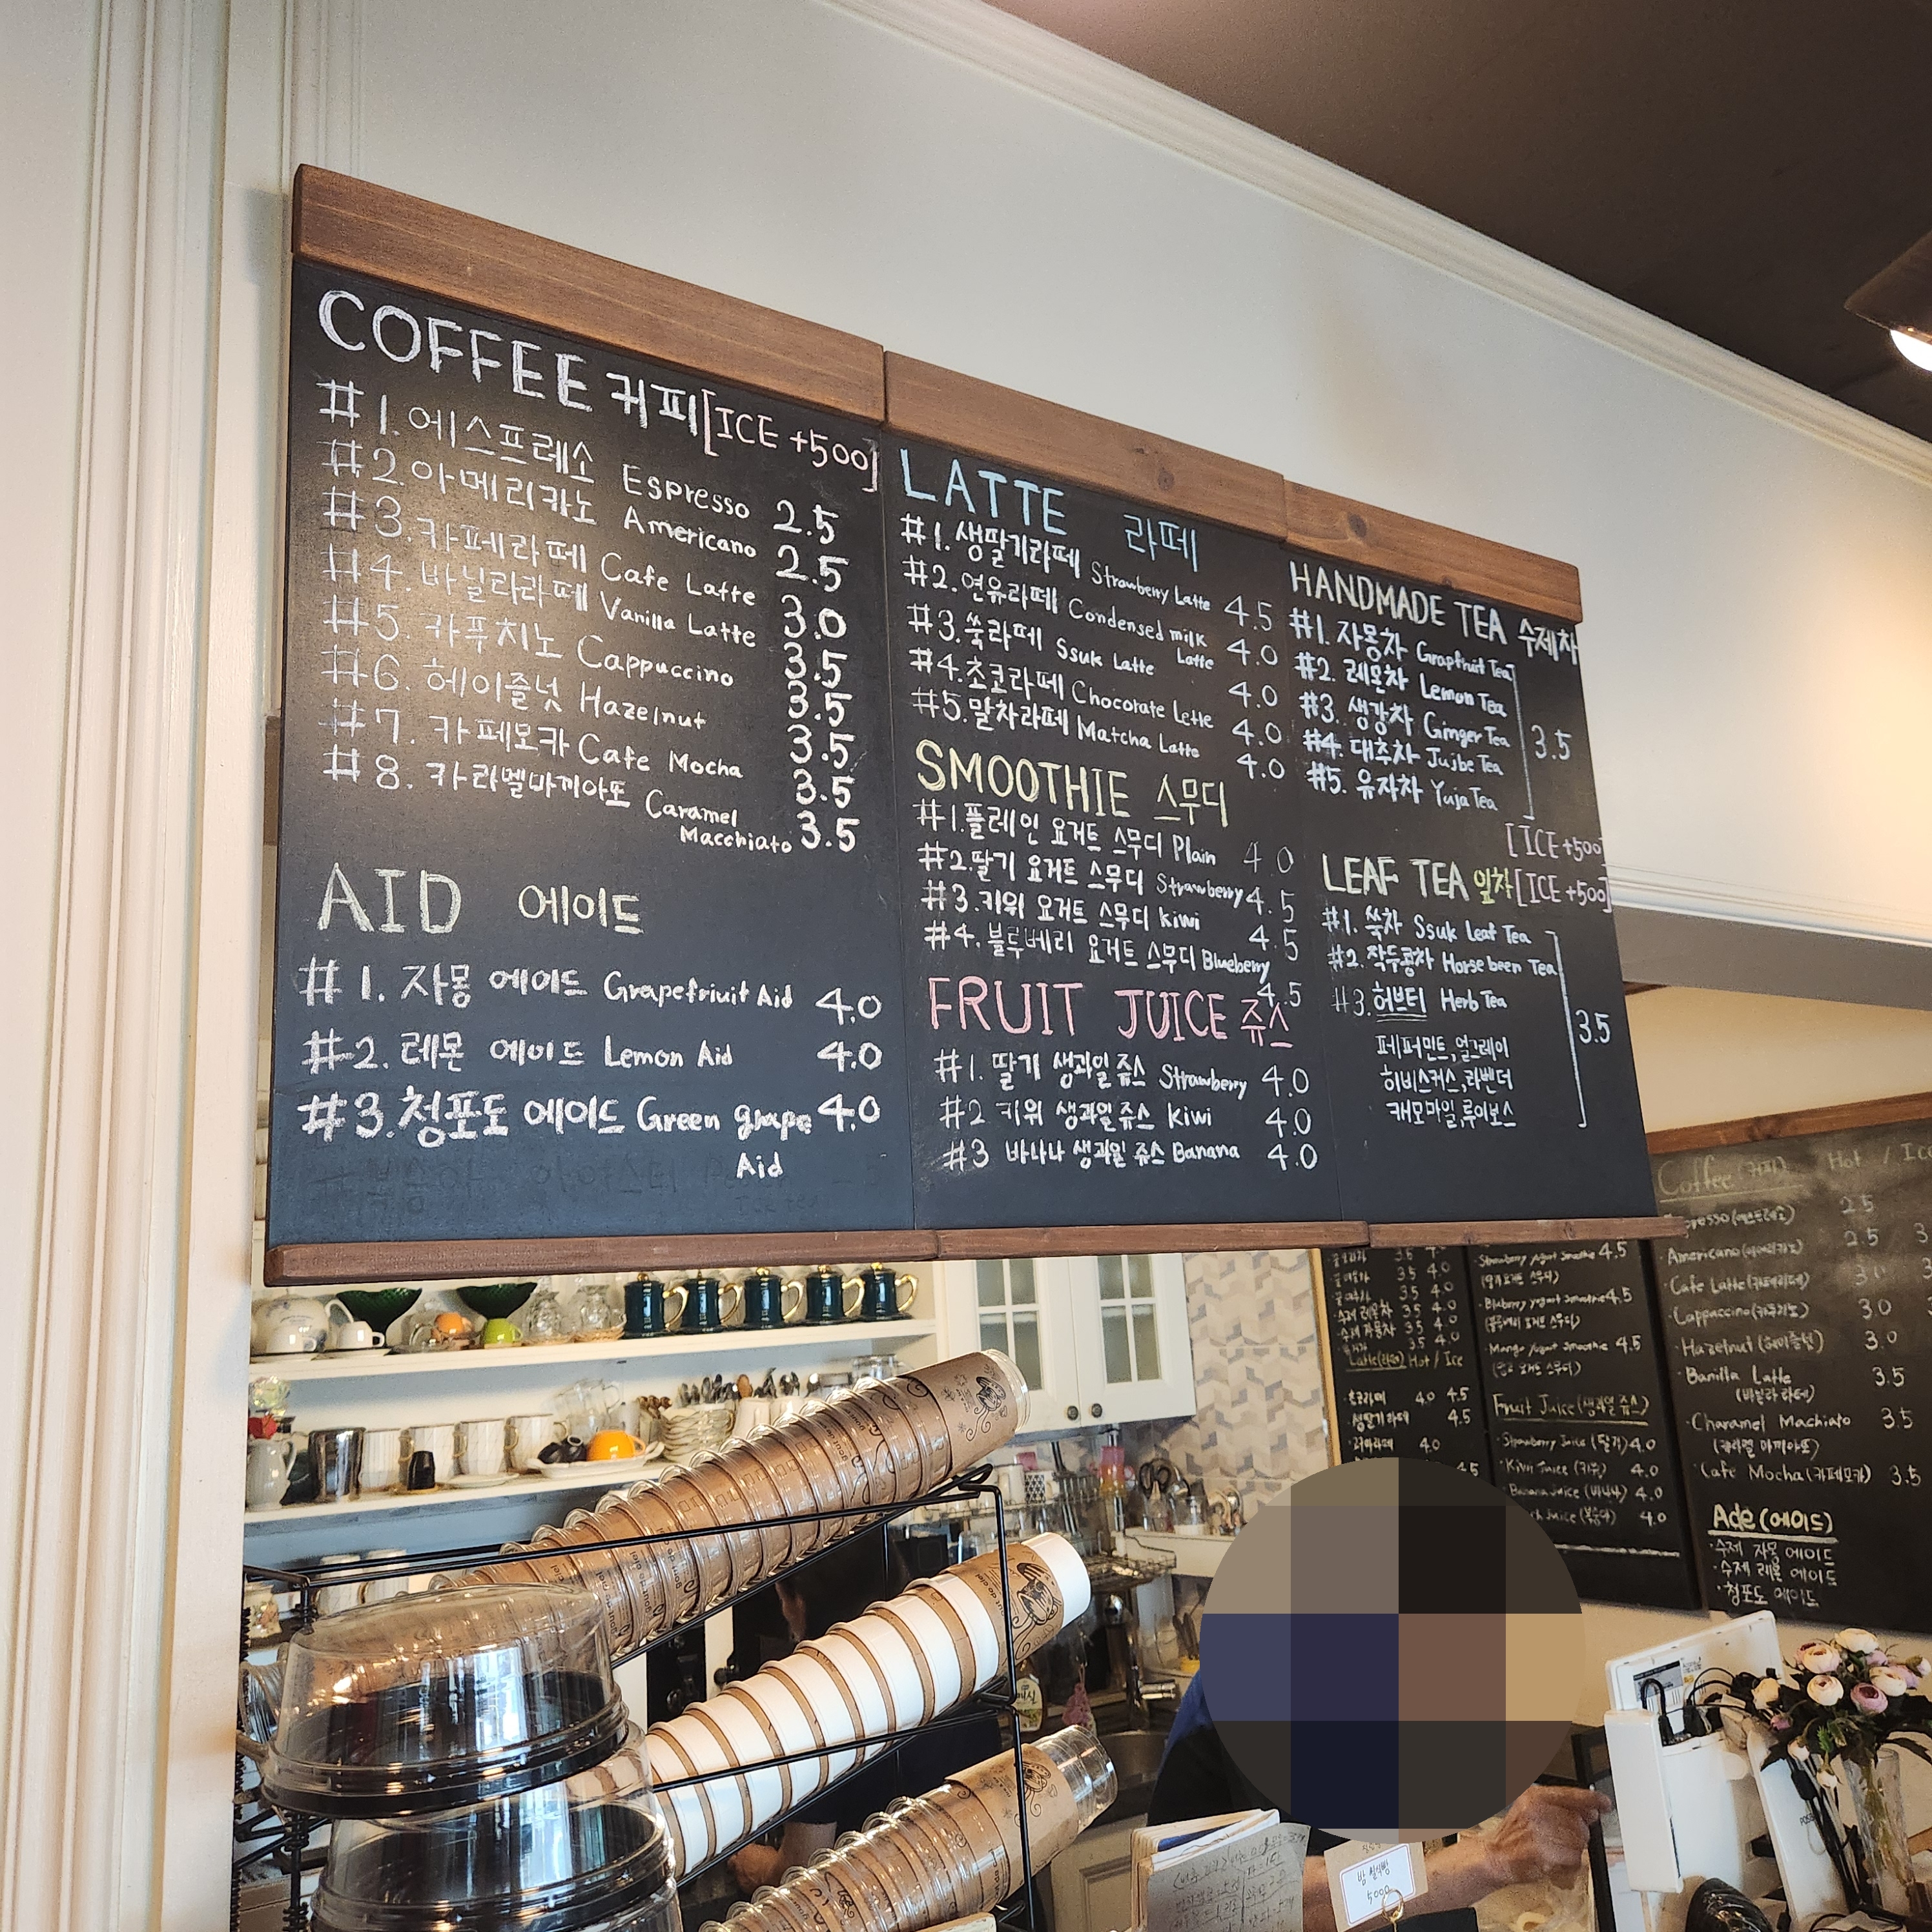 COFFEE 커피[ICE +500]
#1.에스프레소 Espresso 2.5
#2.아메리카노 Americano 2.5
#3.카페라떼 Cafe Latte 3.0
#4.바닐라라떼 Vanilla Latte 3.5
#5.카푸치노 Cappuccino 3.5
#6.헤이즐넛 Hazelnut 3.5
#7.카페모카 Cafe Mocha 3.5
#8.카라멜마끼아또 Caramel
Macchiato 3.5
AID 에이드
#1.자몽 에이드 Grapefriuit Aid 4.0
#2.레몬 에이드 Lemon Aid 4.0
#3.청포도 에이드 Green grape 4.0
Aid
LATTE 라떼
#1.생딸기라떼 Strawberry Latte 4.5
#2.연유라떼 Condensed milk
Latte 4.0
#3.쑥라떼 Ssuk Latte 4.0
#4.초코라떼 Chocorate Lette 4.0
#5.말차라떼 Matcha Latte 4.0
SMOOTHIE 스무디
#1.플레인 요거트 스무디 Plain 4 0
#2.딸기 요거트 스무디 Strawberry 4.5
#3.키위 요거트 스무디 kiwi 4.5
#4.블루베리 요거트 스무디 Blueberry
4.5
FRUIT JUICE 쥬스
#1.딸기 생과일 쥬스 Strawberry 4.0
#2 키위 생과일쥬스 Kiwi 4.0
#3 바나나 생과일 쥬스 Banana 4.0
HANDMADE TEA 수제차
#1.자몽차 Grapfruit Tea
#2.레몬차 Lemon Tea
#3.생강차 Ginger Tea 3.5
#4.대추차 Jujbe Tea
#5.유자차 Yuja Tea
[ICE +500
LEAF TEA 잎차[ICE +500]
#1.쑥차 Ssuk Leaf Tea
#2.작두콩차 Horse been Tea
#3.허브티 Herb Tea 3.5
페퍼민트,얼그레이
히비스커스,라벤더
캐모마일,루이보스
3.5 4.0
3.5 4.0
3.5 4.0
수제 레몬차 3.5 4.0
수제 자몽차 3.5 4.0
3.5 4.0
Latte(라떼) Hot / Ice
4.0 4.5
생딸기라떼 4.5
4.0
4.5
Strawberry yogurt Smoothie 4.5
(딸기요거트 스무디)
Bluberry yogurt Smoothie 4.5
(블루베리 요거트 스무디)
Mango yogurt Smoothie 4.5
(망고 요거트 스무디)
Fruit Juice (생과일 쥬스)
Strawberry Juice (딸기) 4.0
Kiwi Juice (키위) 4.0
Banana Juice (바나나) 4.0
Juice (복숭아) 4.0
Coffee (커피) Hot / Ice
presso (에스프레소) 2.5
Americano (아메리카노) 2.5 3
Cafe Latte (카페라떼) 3.0 3
Cappuccino (카푸치노) 3.0
Hazelnut (헤이즐넛) 3.0
Banilla Latte 3.5
(바닐라 라떼)
Charamel Machiato 3.5
(카라멜 마끼아또)
Cafe Mocha (카페모카) 3.5
Ade (에이드)
수제 자몽 에이드
수제 레몬 에이드
청포도 에이드
5000